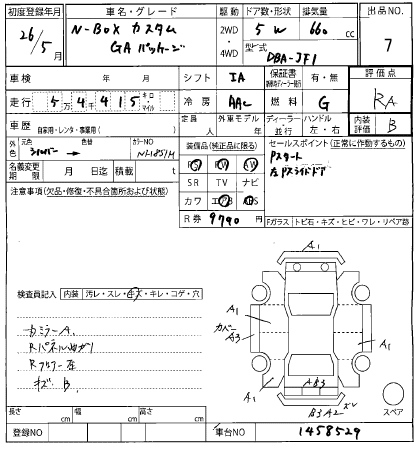 初度登録年月 車名・グレード 駆動 ドア数・形状 排気量 出品NO
26年 5月 N-BOX カスタム 2WD 5 W 660 cc 7
G A パッケージ ・ 4WD 型式 DBA-JF1
車検 年 月 シフト IA 保証書 有・無 評価点
走行 5万4千415 キロ・マイル 冷房 AAC 燃料 G RA
車歴 自家用・レンタ・事業用( ) 定員 人 外車モデル年 ディーラー・並行 ハンドル 左・右 内装評価 B
外色 元色 シルバー 色替 カラーNO NH851M 装備品(純正品に限る) セールスポイント(正常に作動するもの)
名義変更期限 月 日 積載 t PS PW AW Pスタート
注意事項(欠品・修復・不具合箇所および状態) SR TV ナビ 左Pスライドドア
カワ エアB ABS
R券 9790 円 Fガラス トビ石・キズ・ヒビ・ワレ・リペア跡
検査員記入 内装 汚レ・スレ・キズ・キレ・コゲ・穴
A1
A1
カバー A3
A1
Rフロアー左
キズ B
A1
AB3
A1
B3A2
スペア
長さ cm 幅 cm 高さ cm
登録NO 車台NO 1458529